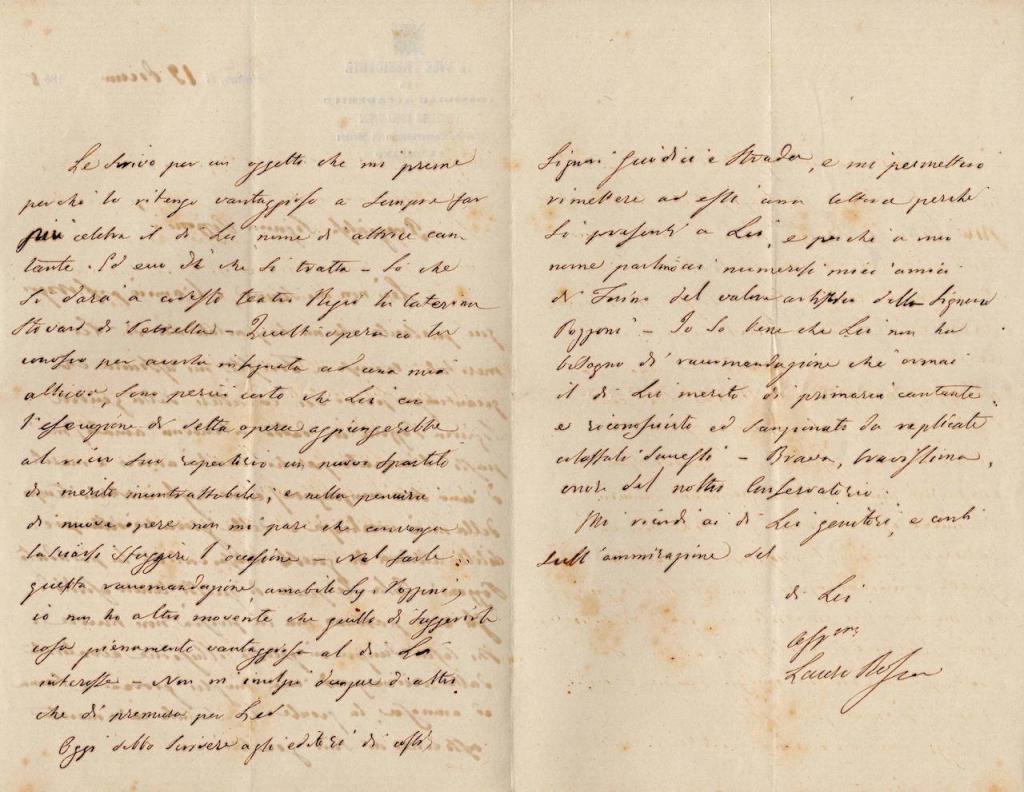 Le scrivo per un oggetto che mi preme
perché lo ritengo vantaggioso a sempre far
più celebre il di Lei nome di attrice can-
tante. Ed ecco di che si tratta - So che
si darà a codesto teatro Regio la Caterina
Howard di Petrella - Quest'opera io la
conosco per averla insegnata ad una mia
allieva, sono perciò certo che Lei con
l'esecuzione di detta opera aggiungerebbe
al ricco suo repertorio un nuovo spartito
di merito incontrastabile; e nella penuria
di nuove opere non mi pare che convenga
lasciarsi sfuggire l'occasione - Nel farle
questa raccomandazione, amabile Sig. Pozzoni,
io non ho altro movente che quello di suggerirle
cosa pienamente vantaggiosa al di Lei
interesse - Non m'incolpi dunque d'altro
che di premura per Lei
Oggi debbo scrivere agli editori di costì
Signori Giudici e Strada, e mi permetterò
rimettere ad essi una lettera perché
si presenti a Lei, e perché a mio
nome partecipi numerosi miei amici
di Torino del valore artistico della Signora
Pozzoni - Io so bene che Lei non ha
bisogno di raccomandazione che ormai
il di Lei merito di primaria cantante
è riconosciuto ed sanzionato da replicati
colossali successi - Brava, bravissima,
onore del nostro Conservatorio.
Mi ricordi ai di Lei genitori, e conti
sull'ammirazione del
di Lei
Lauro Rossi